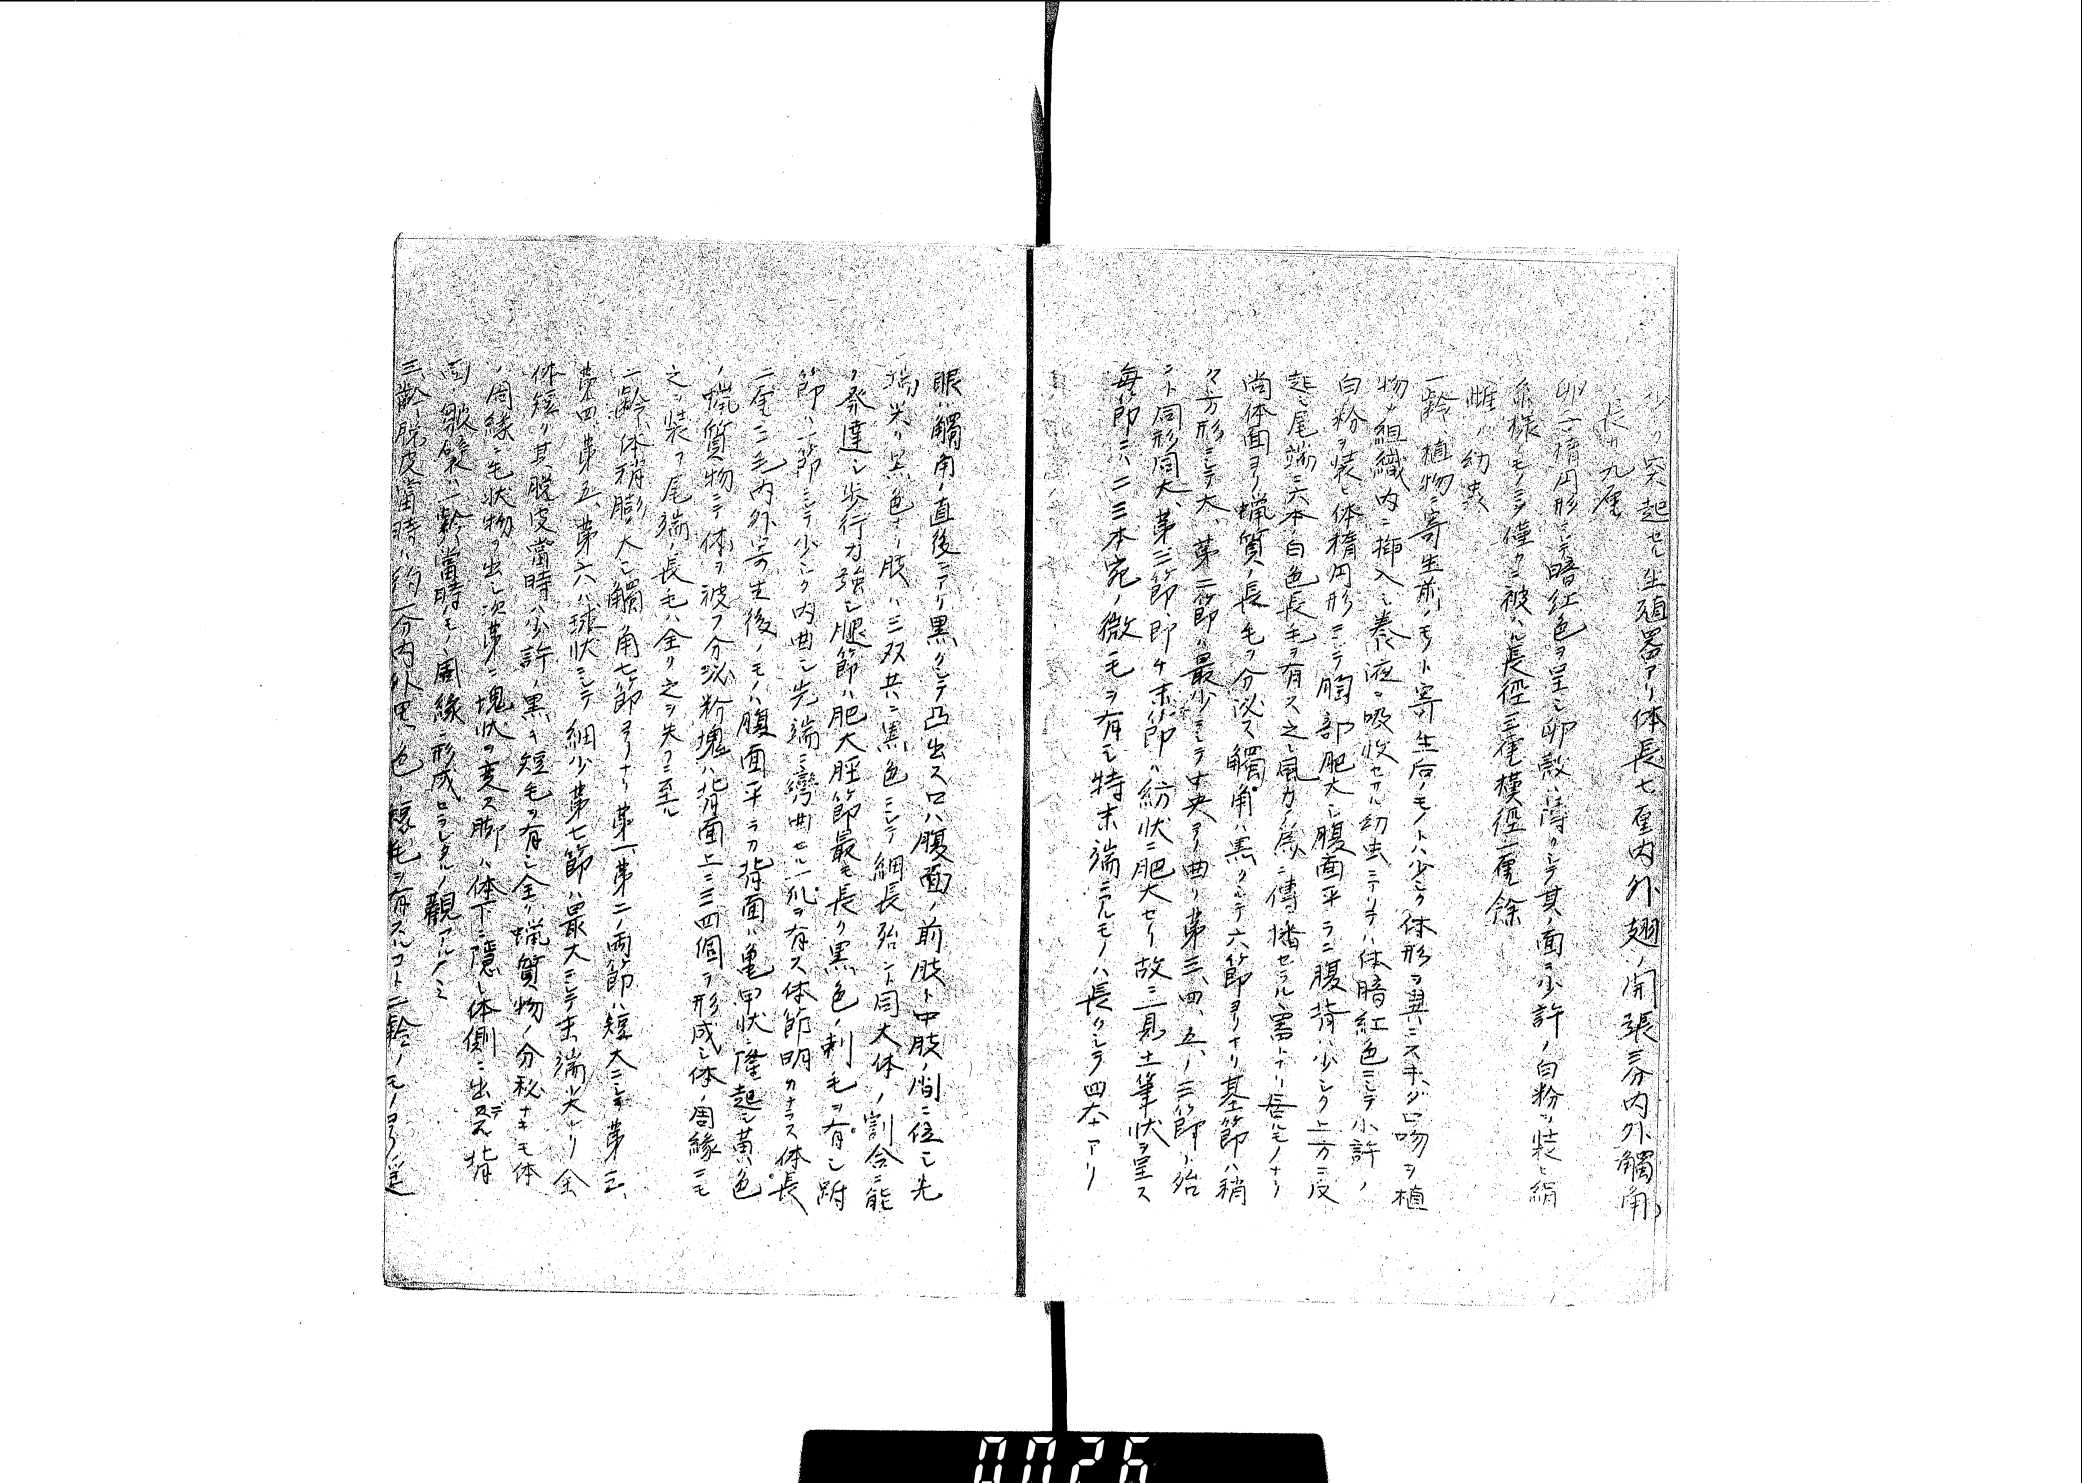 ク突起セル生殖器アリ体長七厘内外翅ノ開張三分内外觸角
長サ九厘
卵ハ楕円形ニシテ暗紅色ヲ呈シ卵殻ハ薄クシテ其ノ面ヲ少許ノ白粉ヲ装ヒ絹
糸様ノモノニテ僅カニ被ハル長径三毫横径二毫餘
雌ノ幼虫
一齢 植物ニ寄生前ノモノト寄生后ノモノトハ少シク体形ヲ異ニス 口吻ヲ植
物ノ組織内ニ挿入シ養液ヲ吸收セサル幼虫ニアリテハ体暗紅色ニシテ小許ノ
白粉ヲ装ヒ体楕円形ニシテ胸部肥大シ腹面平ラニ腹背ハ少シク上方ニ反
起シ尾端ニ六本ノ白色長毛ヲ有ス之レ風力ノ為ニ傳播セラルヽ
尚体面ヨリ蝋質ノ長毛ヲ分泌ス觸角ハ黒クシテ六節ヨリナリ基節ハ稍
々方形ニシテ大、第二節ハ最少ニシテ中央ヨリ曲リ第三、四、五、ノ三節ハ殆
ント同形同大、第三節、即チ末節ハ紡状ニ肥大セリ故ニ一見土筆状ヲ呈ス
毎節ニハ二三本宛ノ微毛ヲ有モ特末端ニアルモノハ長クシテ四本アリ
眼ハ觸角ノ直後ニアリ黒クシテ凸出ス口ハ腹面ノ前肢ト中肢ノ間ニ位シ先
端尖リ黒色ナリ肢ハ三双共ニ黒色ニシテ細長殆ント同大体ノ割合ニ能
ク発達シ歩行力強シ腿節ハ肥大脛節最モ長ク黒色ノ刺毛ヲ有シ跗
節ハ一節ニシテ少シク内曲シ先端ニ彎曲セル一爪ヲ有ス体節明カナラス体長
二厘三毛内外寄生後ノモノハ腹面平ラカ背面ハ亀甲状ニ隆起シ黄色
ノ蝋質物ニテ体ヲ被フ分泌粉塊ハ背面上ニ三四個ヲ形成シ体ノ周緣ニモ
之ヲ装フ尾端ノ長毛ハ全ク之ヲ失フニ至ル
二齢 体稍膨大シ觸角七節ヨリナリ第一、第二ノ両節ハ短大ニシテ第三、
第四、第五、第六ハ球状ニシテ細少第七節ハ最大ニシテ末端尖レリ全
体短リ其脱皮當時ハ少許ノ黒キ短毛ヲ有シ全ク蝋質物ノ分秘ナキモ体
ノ周緣ニ毛状物ヲ出シ次第ニ塊状ヲ変ス脚ハ体下ニ隠レ体側ニ出デズ背
面ノ皺襞ハ一齢當時ハモノ周緣ニ形成セラレタルノ觀アルノミ
三齢 脱皮當時ハ約一分内外黒色ノ短毛ヲ有スルコト二齢ノモノヨリ遥